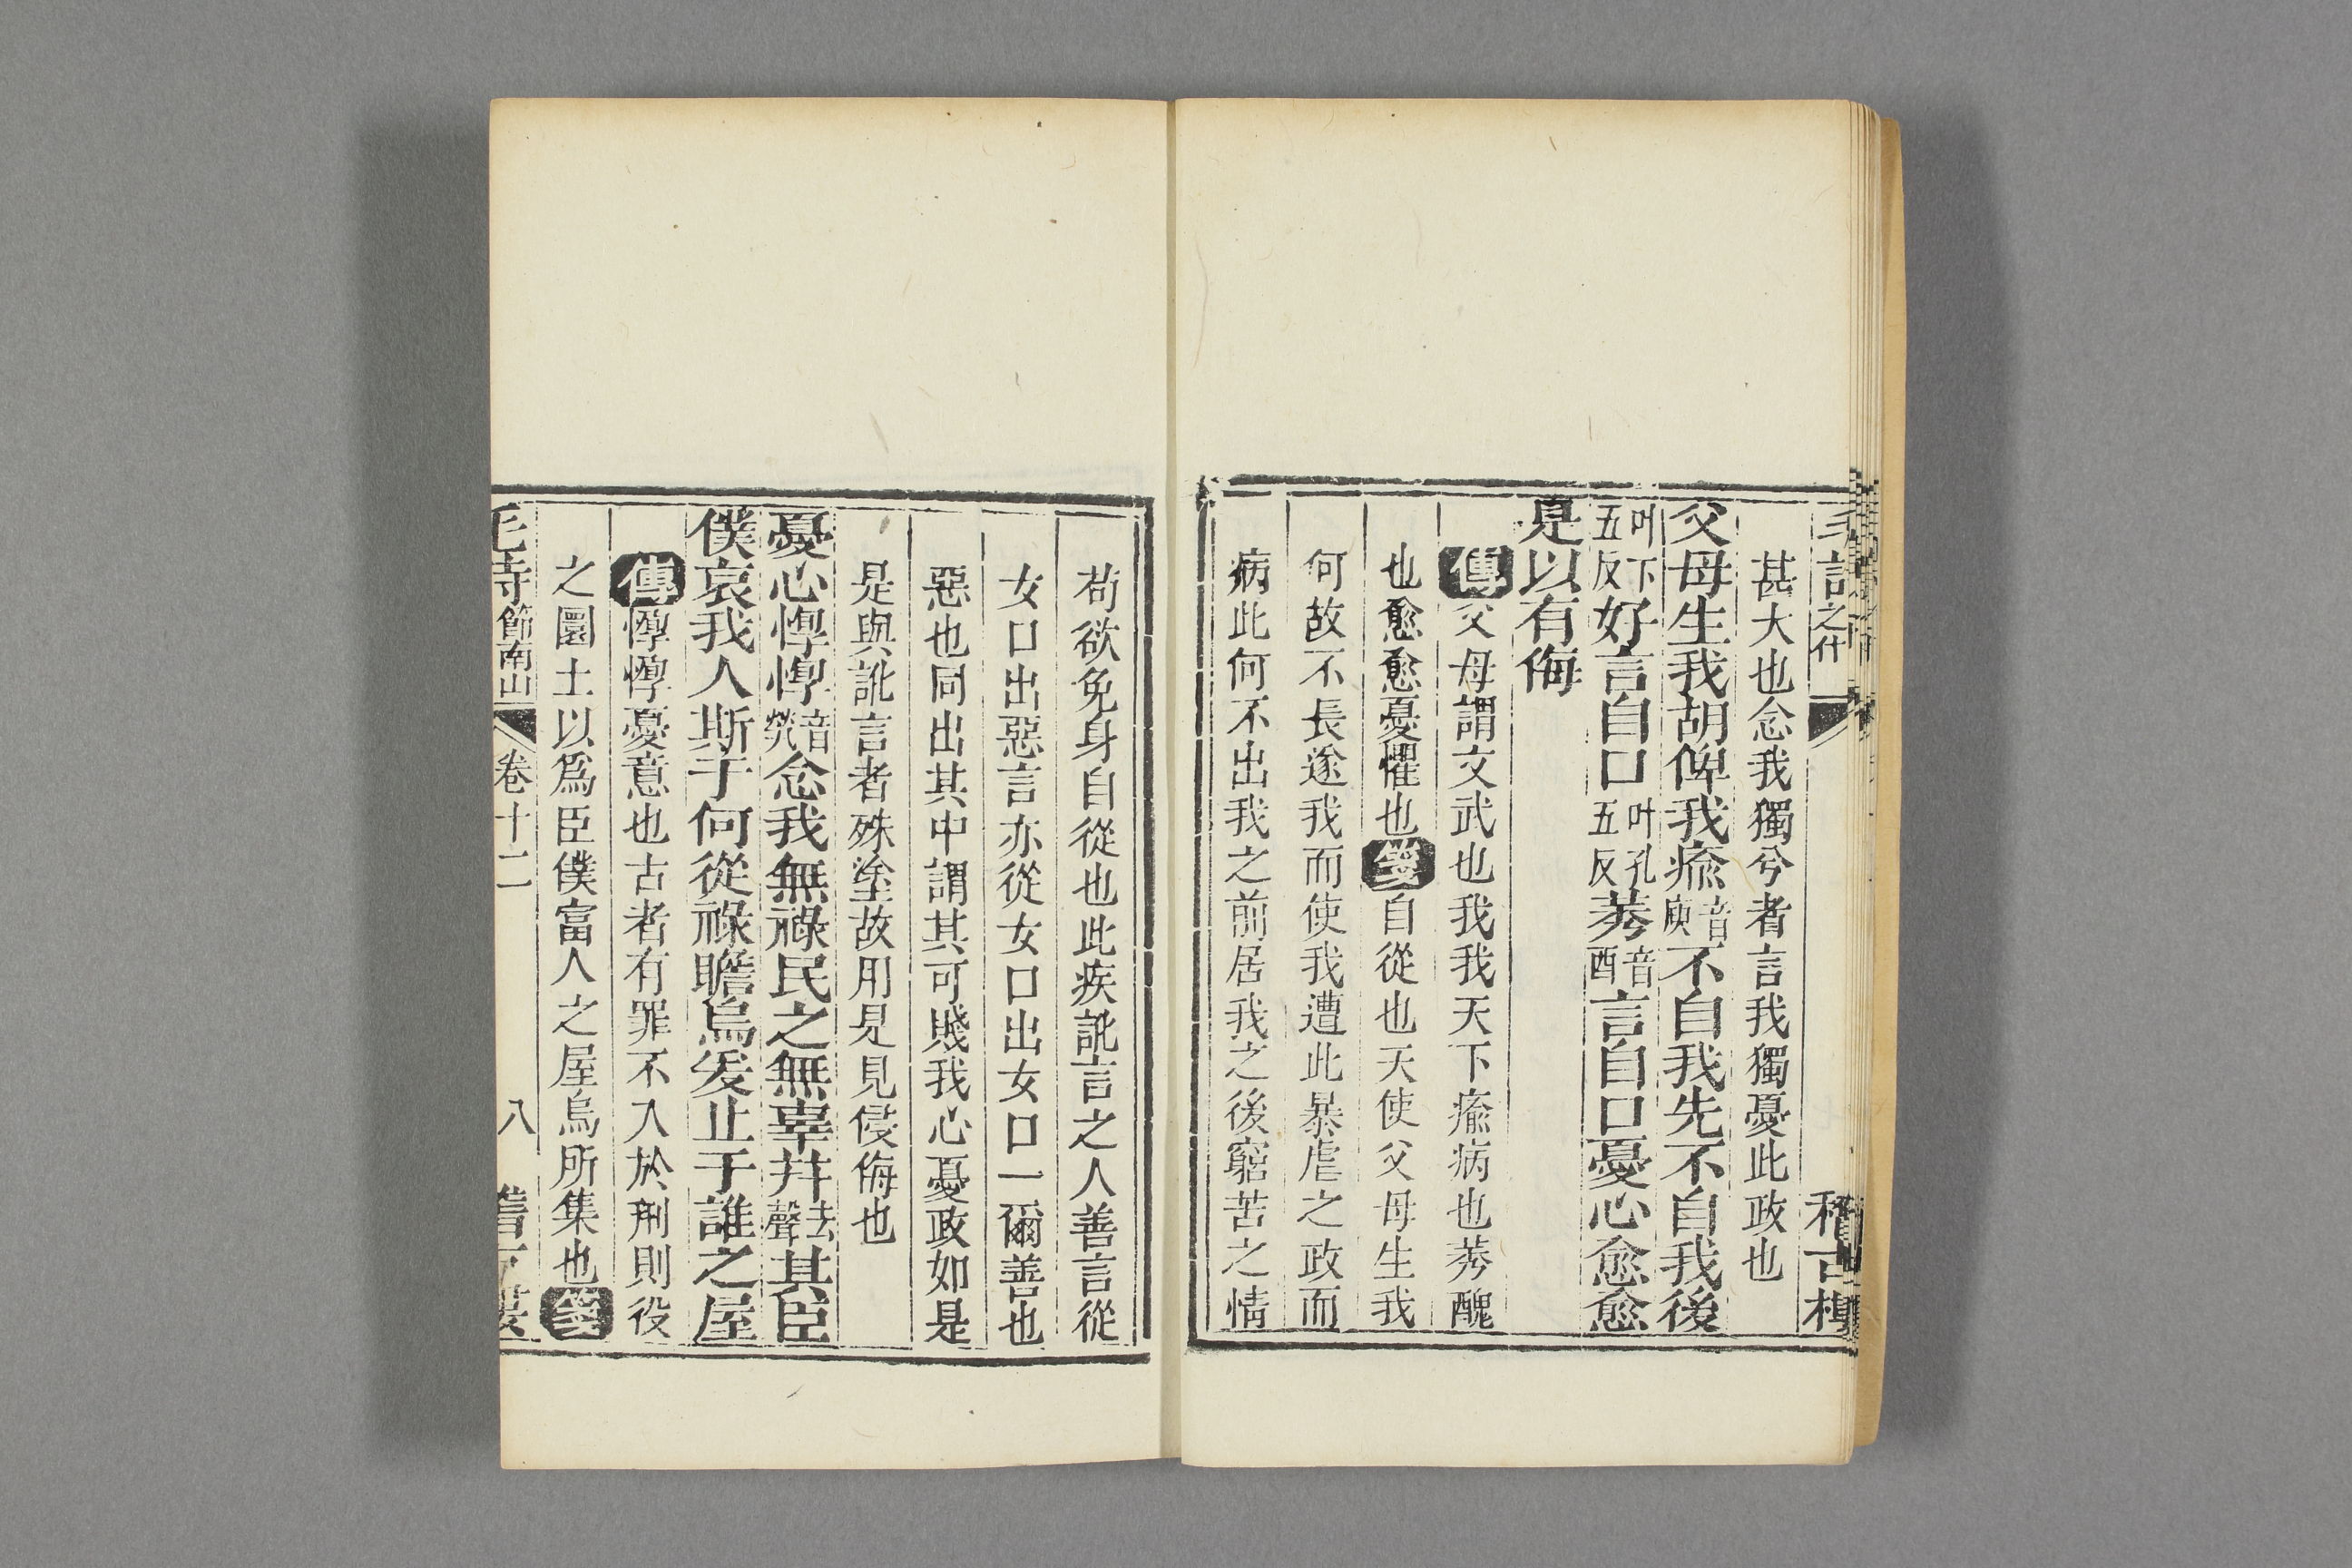 甚大也念我獨兮者言我獨憂此政也
父母生我胡俾我瘉音庾不自我先不自我後
叶下五反好言自口叶孔五反莠音酉言自口憂心愈愈
是以有侮
傳父母謂文武也我我天下瘉病也莠醜
也愈愈憂懼也箋自從也天使父母生我
何故不長遂我而使我遭此暴虐之政而
病此何不出我之前居我之後窮苦之情
苟欲免身自從也此疾訛言之人善言從
女口出惡言亦從女口出女口一爾善也
惡也同出其中謂其可賤我心憂政如是
是與訛言者殊塗故用是見侵侮也
憂心惸惸音煢念我無祿民之無辜幷去聲其臣
僕哀我人斯于何從祿瞻烏爰止于誰之屋
傳惸惸憂意也古者有罪不入於刑則役
之圜土以爲臣僕富人之屋烏所集也箋
節南山 卷十二 八